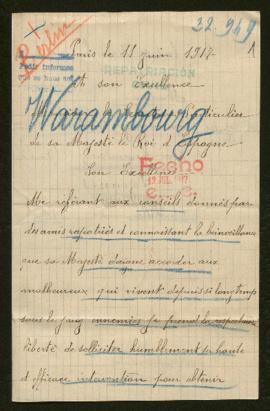 Berlin
32.949
1
Paris le 11 juin 1917
REPATRIACIÓN
Pedir informes
A son Excellence
Warambourg
Particulier
de sa Majesté le Roi d'Espagne
Son Excellence
Me référant aux conseils donnés par
des amis rapatriés et connaissant la bienveillance
que sa Majesté daigne accorder aux
malheureux qui vivent depuis si longtemps
sous le joug ennemie je prend la respectueuse
liberté de solliciter humblement sa haute
et efficace intervention pour obtenir